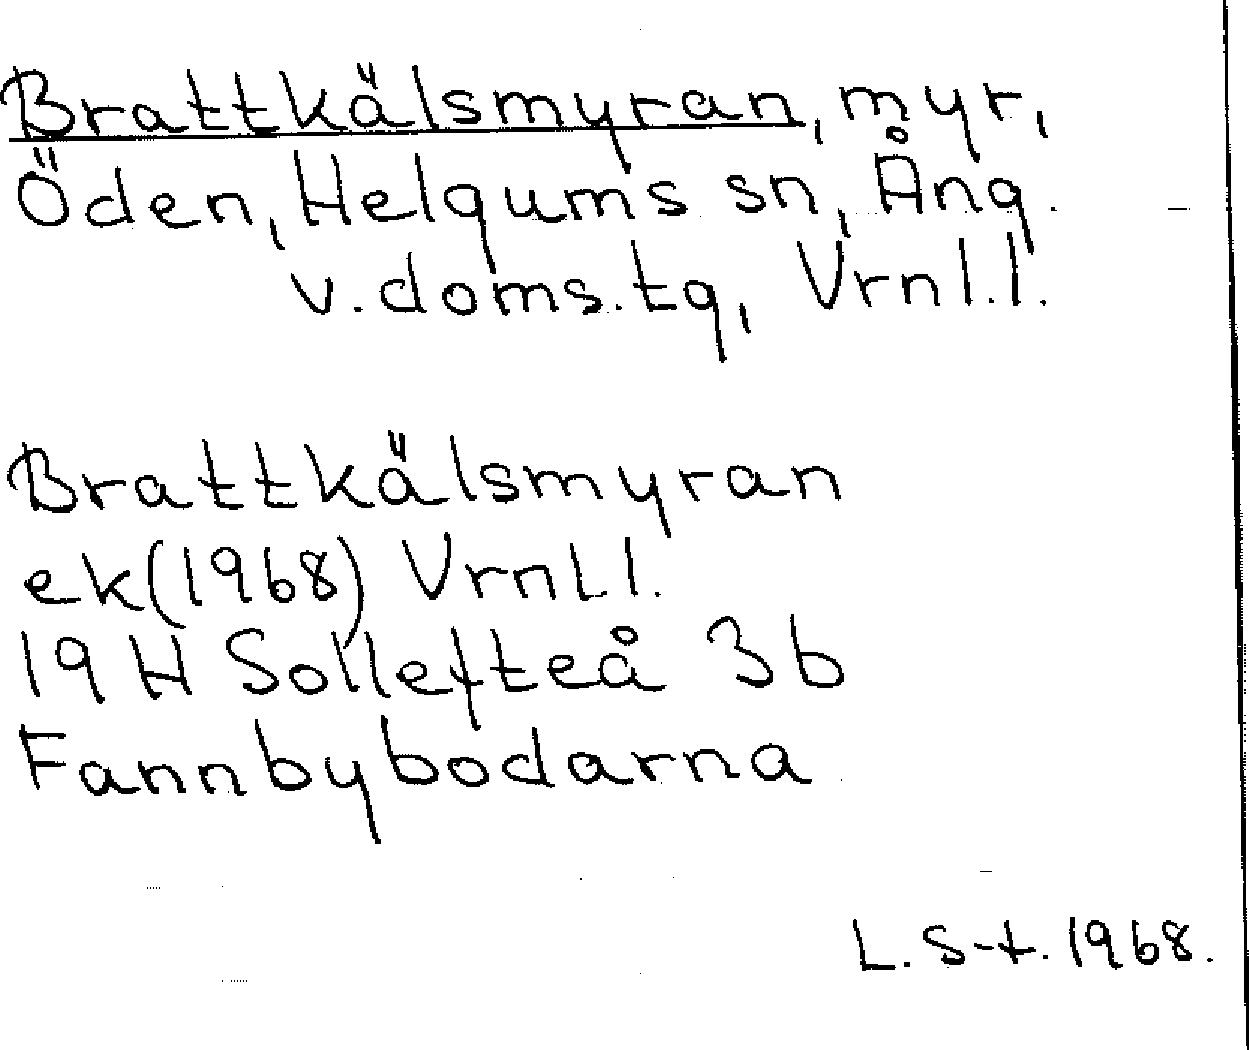 Brattkälsmyran, myr,
Öden, Helgums sn, Ång.
v.doms.tg, Vrnl.l.
Brattkälsmyran
ek(1968) Vrnl.l.
19 H Sollefteå 3b
Fannbybodarna
L. S-t. 1968.